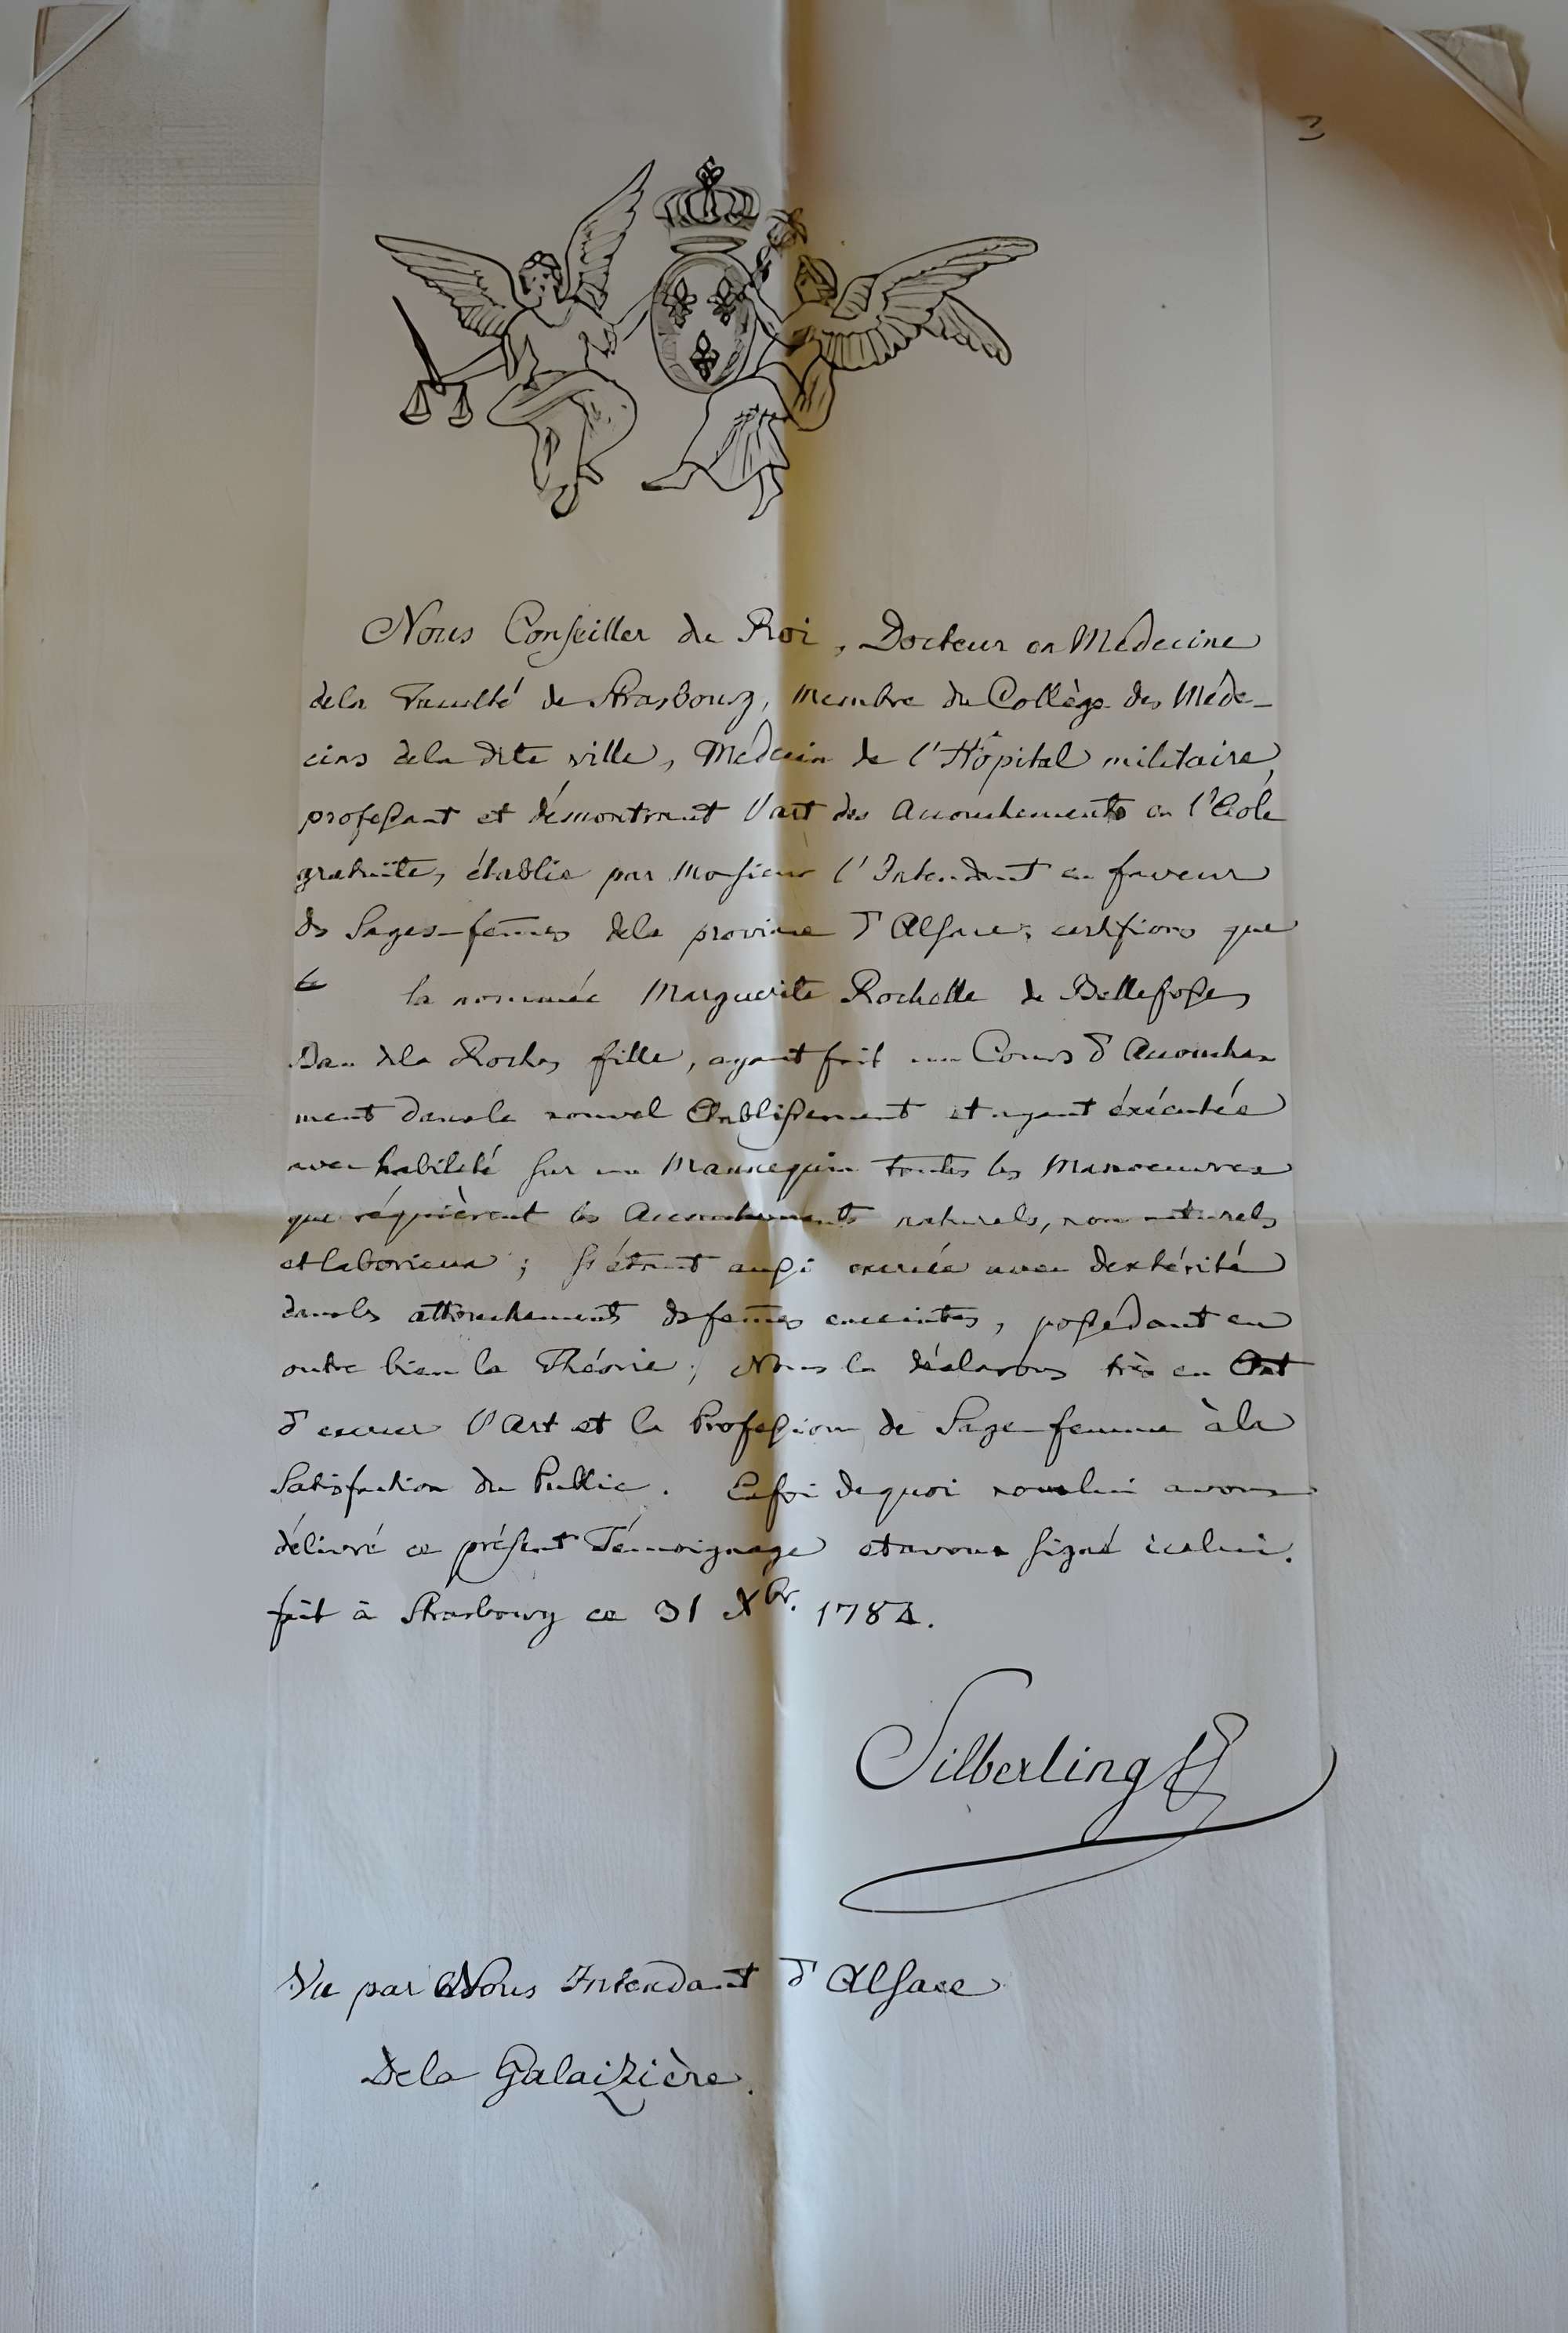 3
Nous Conseiller du Roi, Docteur en Médecine
dela Faculté de Strasbourg, Membre du Collège des Méde-
cins dela dite ville, Médecin de l'Hôpital militaire,
professant et démontrant l'art des Accouchements en l'Ecole
gratuite, établie par Monsieur l'Intendant en faveur
des Sages-femes dela province d'Alsace; certifions que
la nommée Marguerite Rochelle de Bellefosse,
Ban dela Roche, fille, ayant fait un Cours d'Accouche
ment dansle nouvel Etablissement et ayant éxécutée
avec habileté sur un Mannequin toutes les Manoeuvres
que réquièrent les Accouchements naturels, non naturels
et laborieux; s'étant aussi exercée avec dextérité
dansles attouchements des femes enceintes, possédant en
outre bien la Théorie; Nous la déclarons très en Etat
d'exercer l'Art et la Profession de Sage-femme àla
Satisfaction du Public. En foi dequoi nous lui avons
délivré ce présent Témoignage et avons signé icelui.
fait à Strasbourg ce 31 Xbr. 1784.
Silberling
Vu par Nous Intendant d'Alsace
Dela Galaizière.